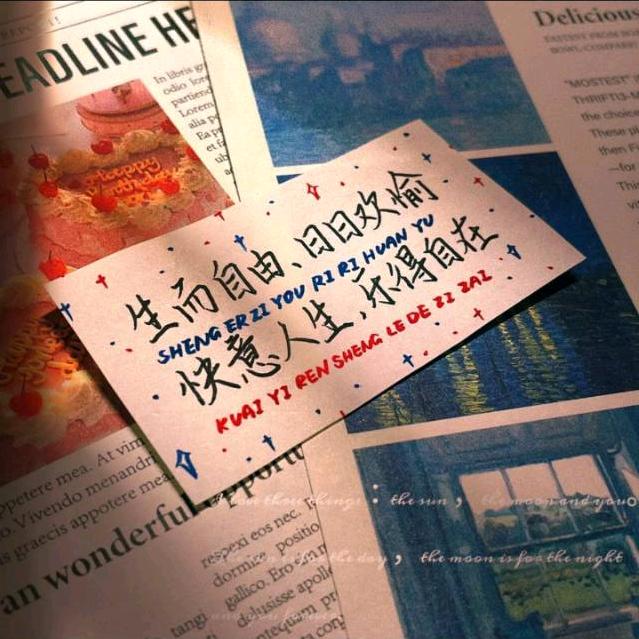 REPORT!
EADLINE HE
In libris gr
odio ior
partiend
Lorem
alia po
Ea p
Happy
Birthday
Delicious
"MOSTEST"
THRIFT13-M
the choice
These p
then F
—for
Th
生而自由、日日欢愉
SHENG ER ZI YOU RI RI HUAN YU
快意人生,乐得自在
KUAI YI REN SHENG LE DE ZI ZAI
ppetere mea. At vim
o. Vivendo menandri
s graecis appetere mea.
an wonderful opportu
respexi eos nec.
dorming, positio
gallico. Ero
delusisse apolle
tangi
I love three things：the sun，the moon and you。
The sun is for the day，the moon is for the night
and you forever